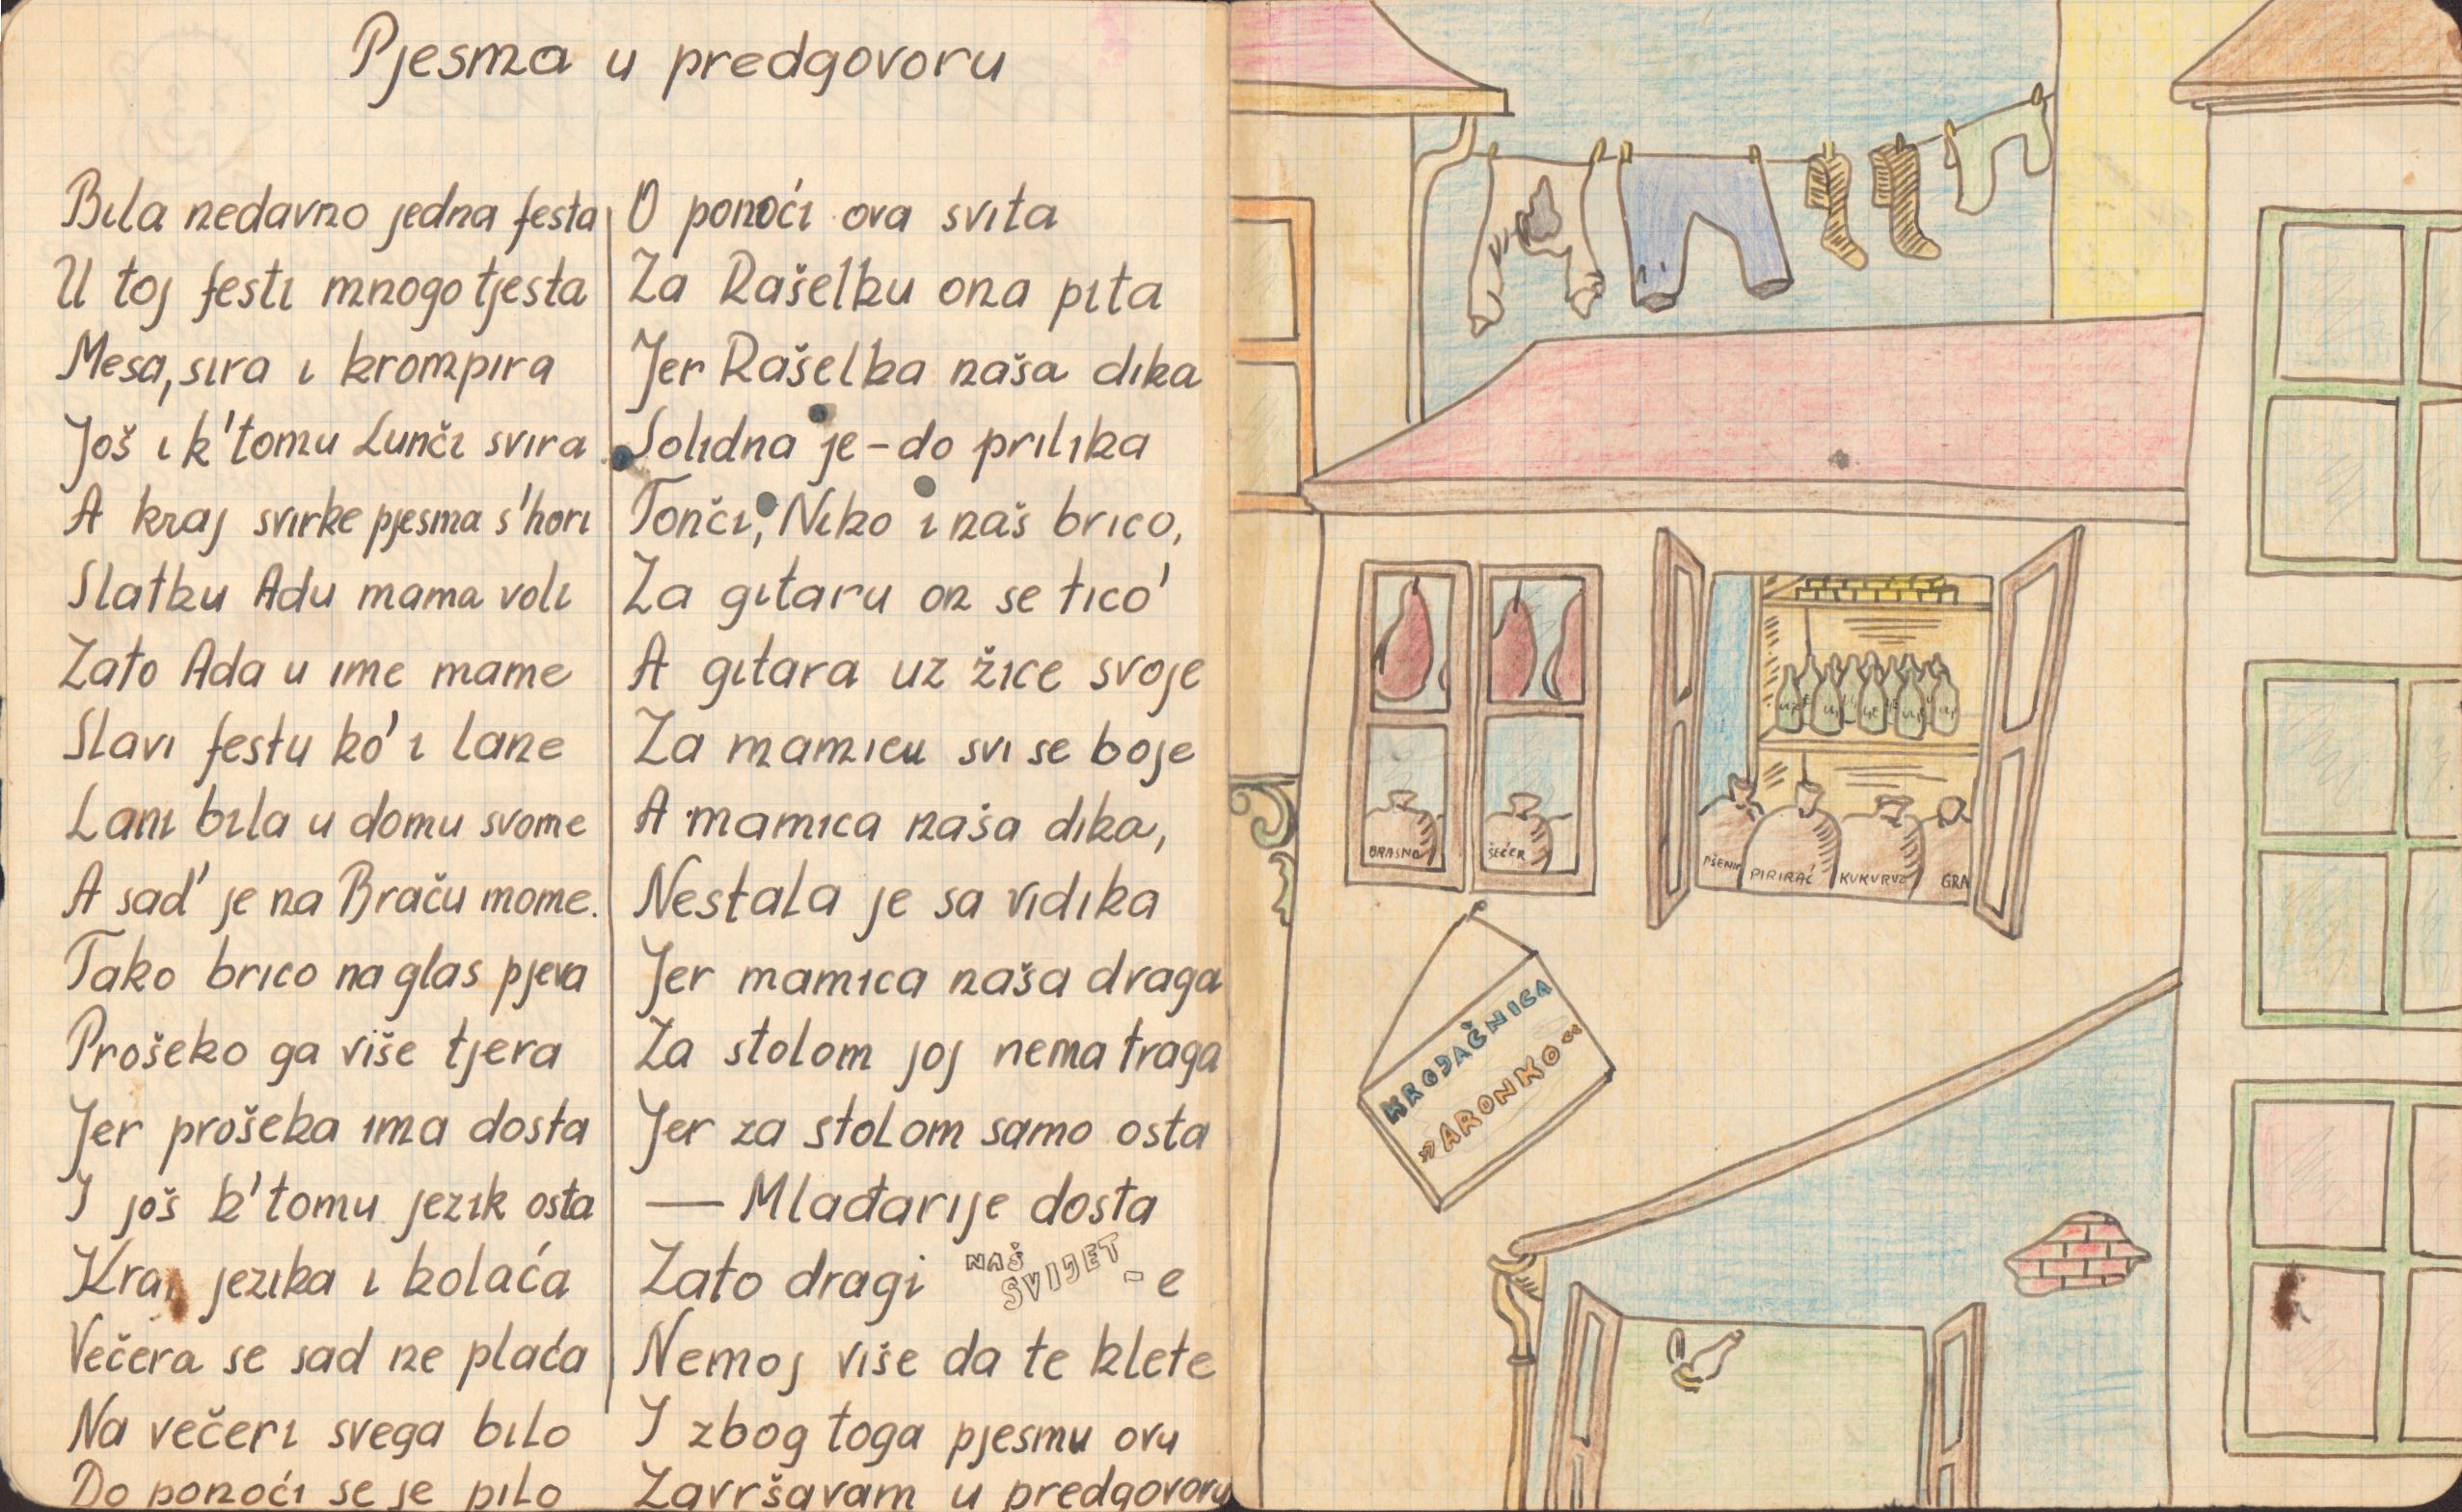 Pjesma u predgovoru
Bila nedavno jedna festa
U toj festi mnogo tjesta
Mesa, sira i krompira
Još i k'tomu Lunči svira
A kraj svirke pjesma s'hori
Slatku Adu mama voli
Zato Ada u ime mame
Slavi festu ko' i lane
Lani bila u domu svome
A sad' je na Braču mome.
Tako brico na glas pjeva
Prošeko ga više tjera
Jer prošeka ima dosta
I još k'tomu jezik osta
Kraj jezika i kolaća
Večera se sad ne plaća
Na večeri svega bilo
Do ponoći se je pilo
O ponoći ova svita
Za Rašelku ona pita
Jer Rašelka naša dika
Solidna je - do prilika
Tonči, Niko i naš brico,
Za gitaru on se tico'
A gitara uz žice svoje
Za mamicu svi se boje
A mamica naša dika,
Nestala je sa vidika
Jer mamica naša draga
Za stolom joj nema traga
Jer za stolom samo osta
— Mlađarije dosta
Zato dragi NAŠ SVIJET - e
Nemoj više da te klete
I zbog toga pjesmu ovu
Završavam u predgovoru
BRASNO
ŠEĆER
PŠENIC
PIRIRAĆ
KUKURUZ
GRA
KROJAČNICA
»ARONKO«